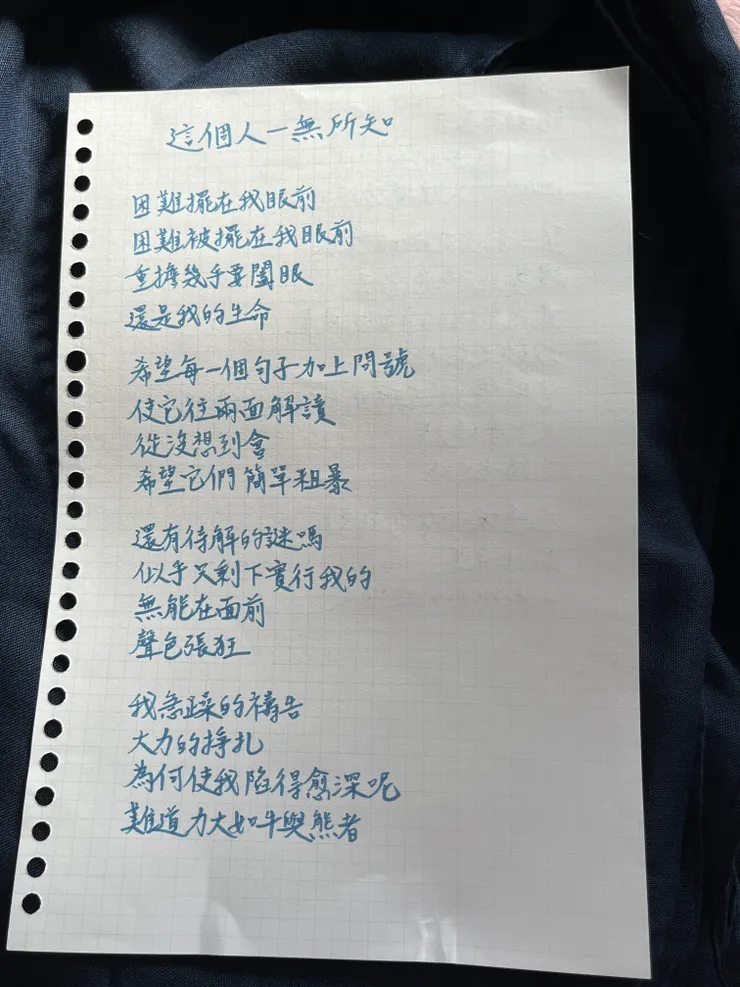 這個人一無所知
困難擺在我眼前
困難被擺在我眼前
重擔幾乎要闔眼
還是我的生命
希望每一個句子加上問號
使它往兩面解讀
從沒想到會
希望它們簡單粗暴
還有待解的謎嗎
似乎又剩下實行我的
無能在面前
聲色張狂
我急躁的禱告
大力的掙扎
為何使我陷得愈深呢
難道力大如牛與熊者